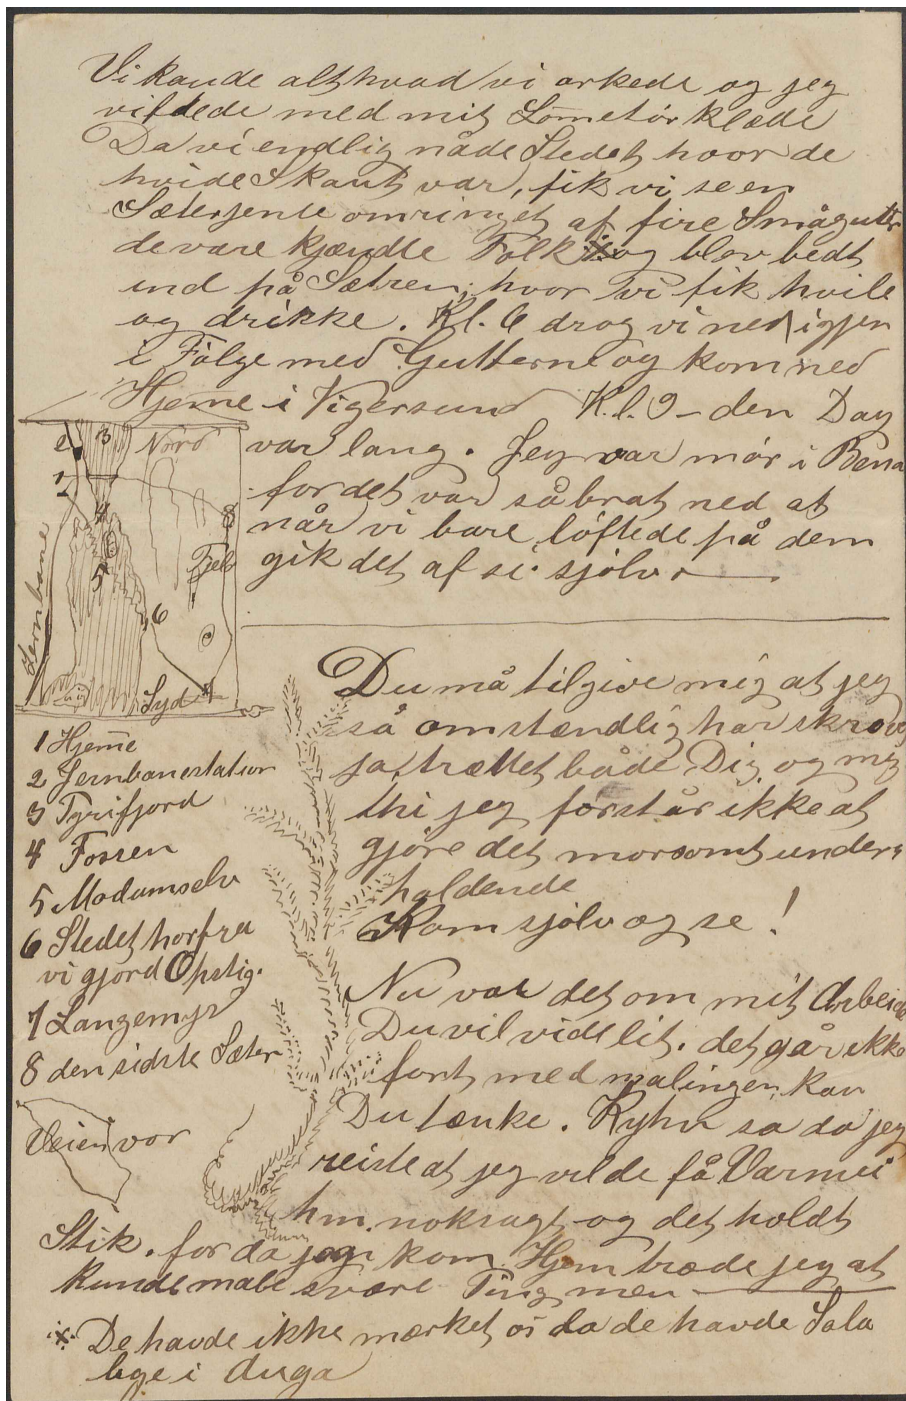 Vi kaude alt hvad vi orkede og jeg
viftede med mit Lometörklæde
Da vi endlig nåde Stedet hvor de
hvide Skaut var, fik vi se en
Sæterjente omringet af fire Smågutter
de vare kjændte Folk og blev bedt
ind på Sætren, hvor vi fik hvile
og drikke. Kl. 6 drog vi ned igjen
i Fölge med Gutterne og kom ned
Hjeme i Vigersund Kl. 9 – den Dag
var lang. Jeg var mör i Bena
for det var så brat ned at
når vi bare löftede på dem
gik det af si sjölv.
2
3
Nord
1
4
8
5
Fjeld
6
Jernbane
Syd
7
1 Hjeme
2 Jernbanestation
3 Tyrifjord
4 Fossen
5 Modumselv
6 Stedet horfra
vi gjord Opstig.
7 Langemyr
8 den sidste Sæter
Veien vor
Du må tilgive mig at jeg
så omstændlig har skrevet
ja, trættet både Dig og mig
thi jeg forstår ikke at
gjöre det morsomt under=
holdende
Kom sjölv og se!
Nu var det om mit Arbeide
Du vil vide lit. det går ikke
fort med malingen, kan
Du tænke. Kyhn sa da jeg
reiste at jeg vilde få Varme i
hm. noksagt og det holdt
Stik. for da jeg kom Hjem træde jeg at
kunde male svære Ting men
* De havde ikke mærket os da de havde Sala
lige i duga